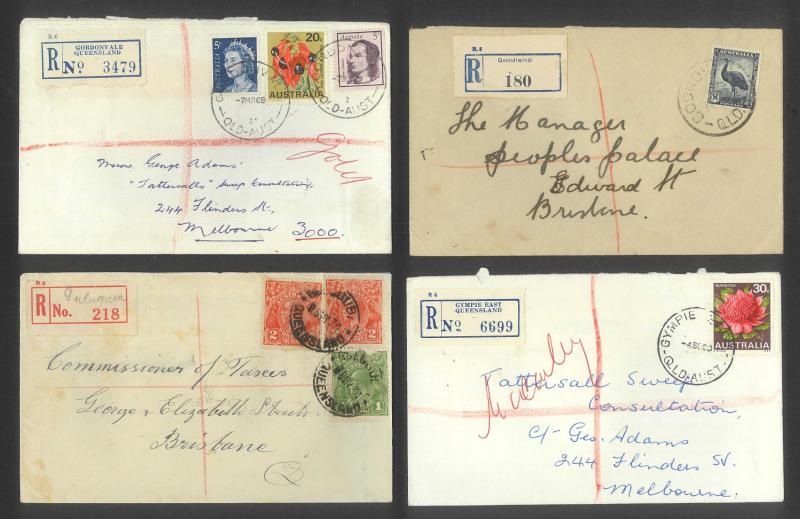 R.6
R
GORDONVALE
QUEENSLAND
No 3479
5c
AUSTRALIA
20c
AUSTRALIA
Australia 5c
-7MR69
QLD-AUST
2
QLD-AUST
Messrs George Adams'
"Tattersalls" Sweep Consultation,
244 Flinders St,
Melbourne 3000.
R.6
R
Goondiwindi
180
AUSTRALIA
QLD.
The Manager
Peoples Palace
Edward St
Brisbane.
R6
R
No. 218
2
2
1
QUEENSLAND
QUEENSLAND
Commissioner of Taxes
George & Elizabeth Streets
Brisbane
R6
R
GYMPIE EAST
QUEENSLAND
No 6699
WARATAH
30c
AUSTRALIA
GYMPIE
QLD-AUST
Tattersall Sweep
Consultation,
C/- Geo. Adams
244 Flinders St.
Melbourne.